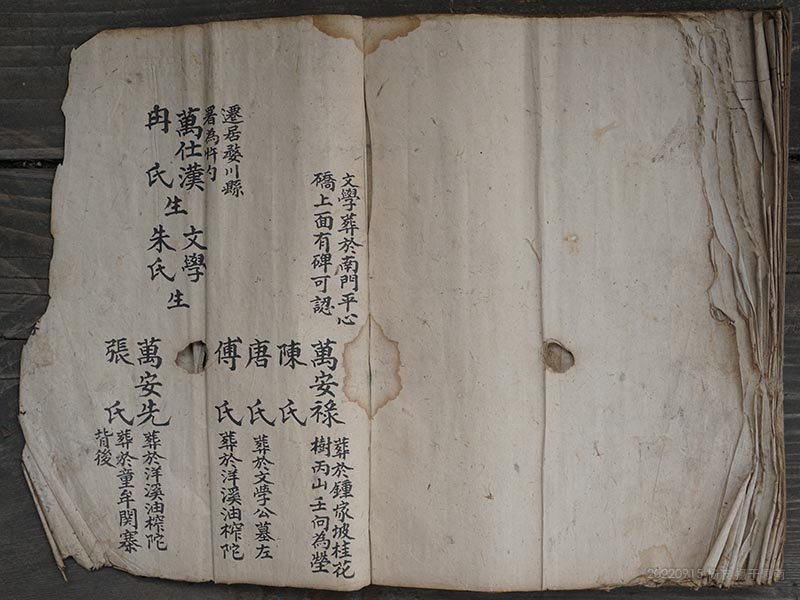 文學葬於南門平心
礄上面有碑可認
萬安祿
葬於鍾家坡桂花
樹丙山壬向為塋
陳氏
唐氏
葬於文學公墓左
傅氏
葬於洋溪油榨陀
遷居婺川縣
署為忤灼
萬仕漢
生
文學
冉氏
朱氏
生
萬安先
葬於洋溪油榨陀
張氏
葬於童牟関寨
背後